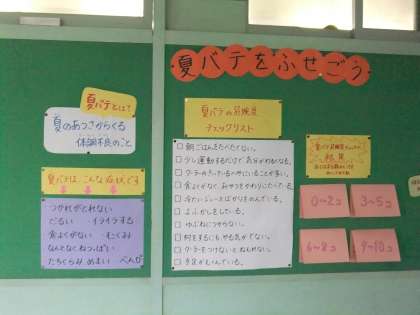 夏バテをふせごう
夏バテとは?
夏のあつさからくる
体調不良のこと
夏バテは、こんな症状です
つかれがとれない
だるい イライラする
食よくがない むくみ
なんとなくねつっぽい
たちくらみ めまい べんぴ
夏バテの危険度
チェックリスト
□ 朝ごはんをたべたくない。
□ 少し運動するだけで気分がわるくなる。
□ クーラーのきいているへやにいることが多い。
□ 食よくがなく、おやつをかわりにたべてる。
□ 冷たいジュースばかりをのんでいる。
□ よふかしをしている。
□ ゆぶねにつからない。
□ 何をするにもやる気がでない。
□ クーラーをつけないとねむれない。
夏バテ危険度チェックの
結果
0~2コ
3~5コ
6~8コ
9~10コ